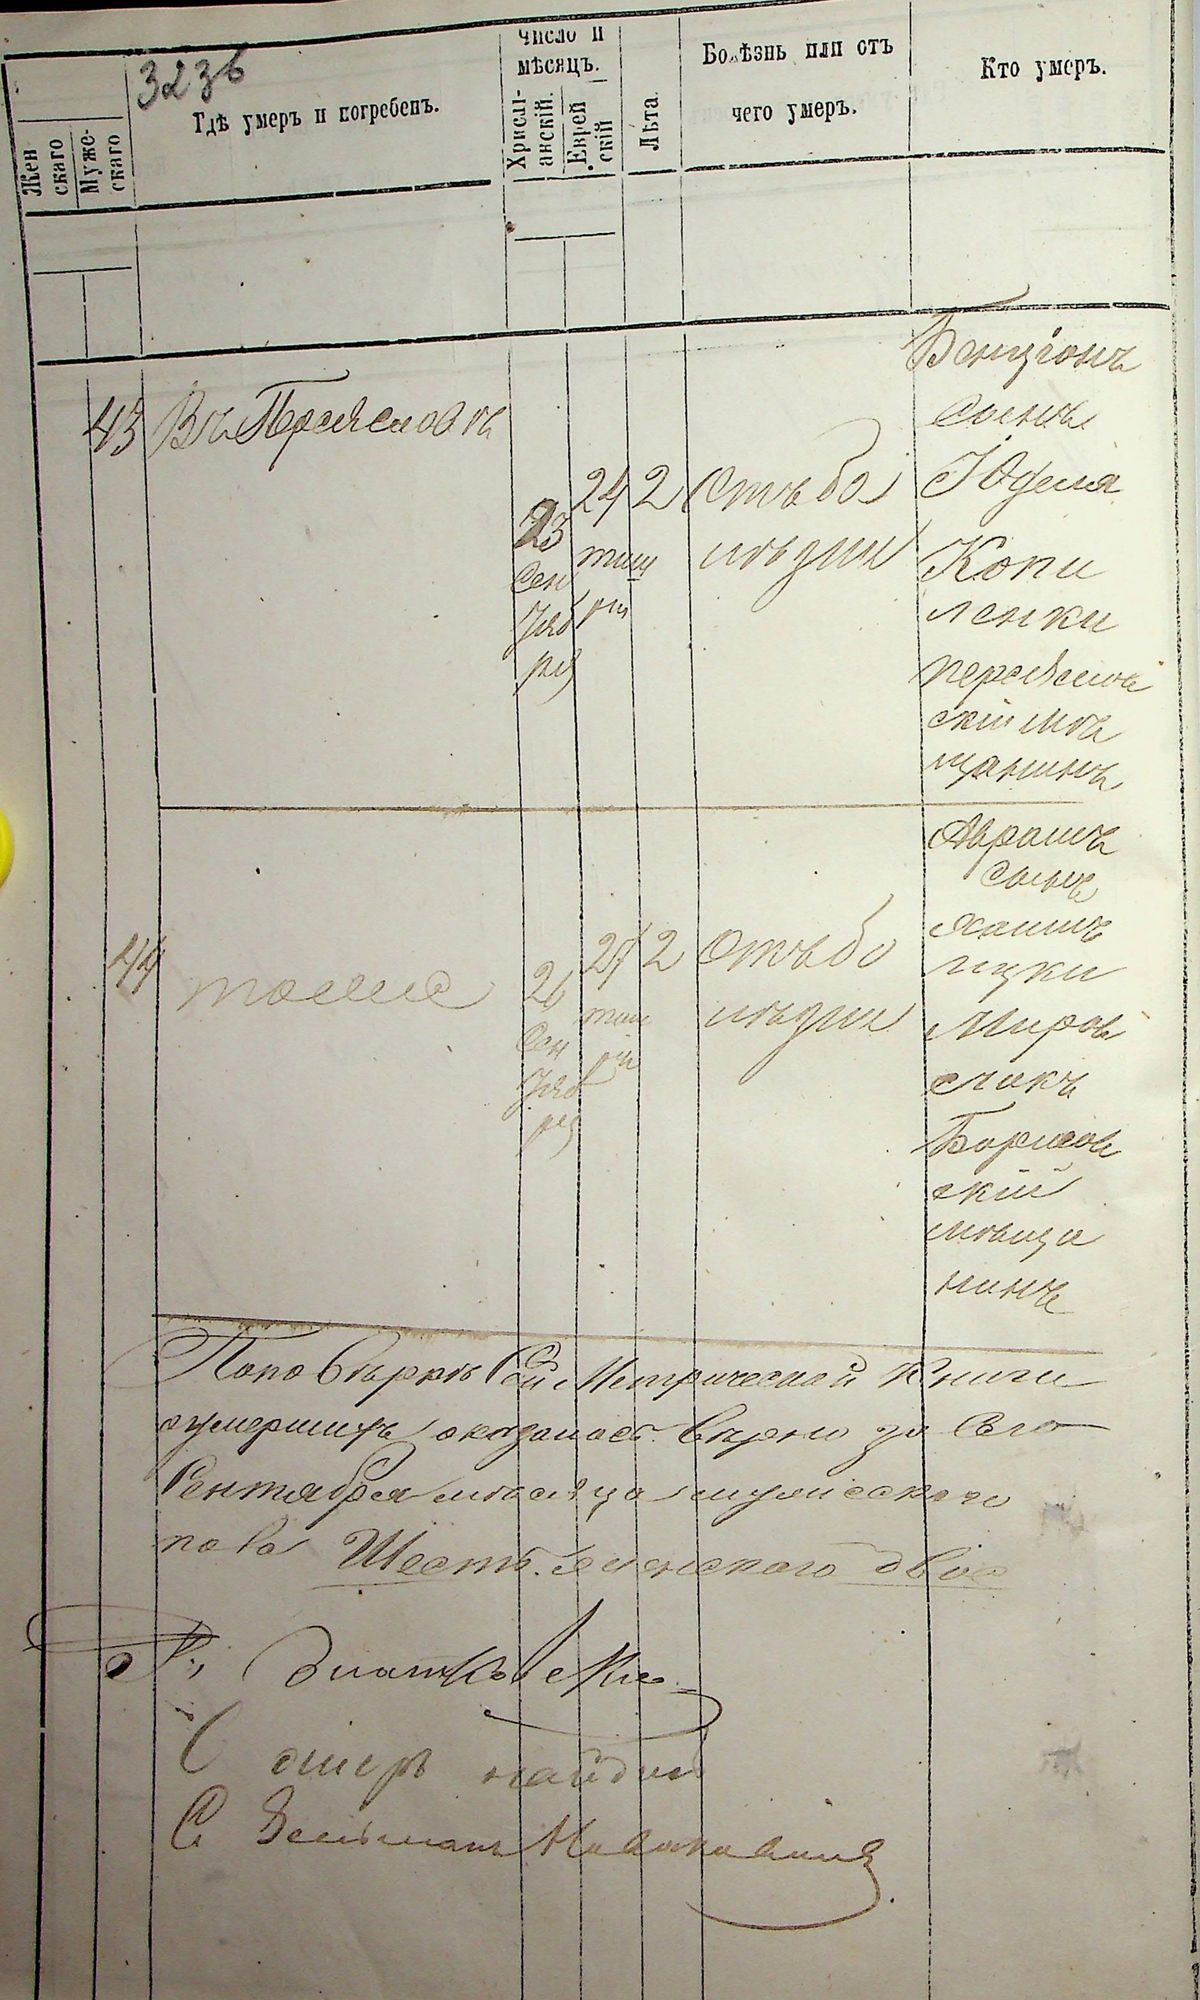 323б
Жен
скаго
Муже-
скаго
Гдѣ умеръ и погребенъ.
Число и
мѣсяцъ.
Христі-
анскій.
Еврей
скій
Лѣта
Болѣзнь или отъ
чего умеръ.
Кто умеръ.
43
Въ Переяславѣ
23
Сен
тяб
ря
24
тиш
ри
2
Отъ бо
лѣзни
Бенціонъ
сынъ
Юделя
Копи
ленки
переяслав
скій мѣ
щанинъ
44
тоже
26
Сен
тяб
ря
27
тиш
ри
2
Отъ бо
лѣзни
Аврамъ
сынъ
Хаимъ
ицки
Миров
слакъ
Борисов
скій
мѣща
нинъ
По повѣркѣ сей Метрической Книги
умершихъ оказалось вѣрно за
Сентябрь мѣсяцъ мужескаго
пола Шесть. женскаго двое